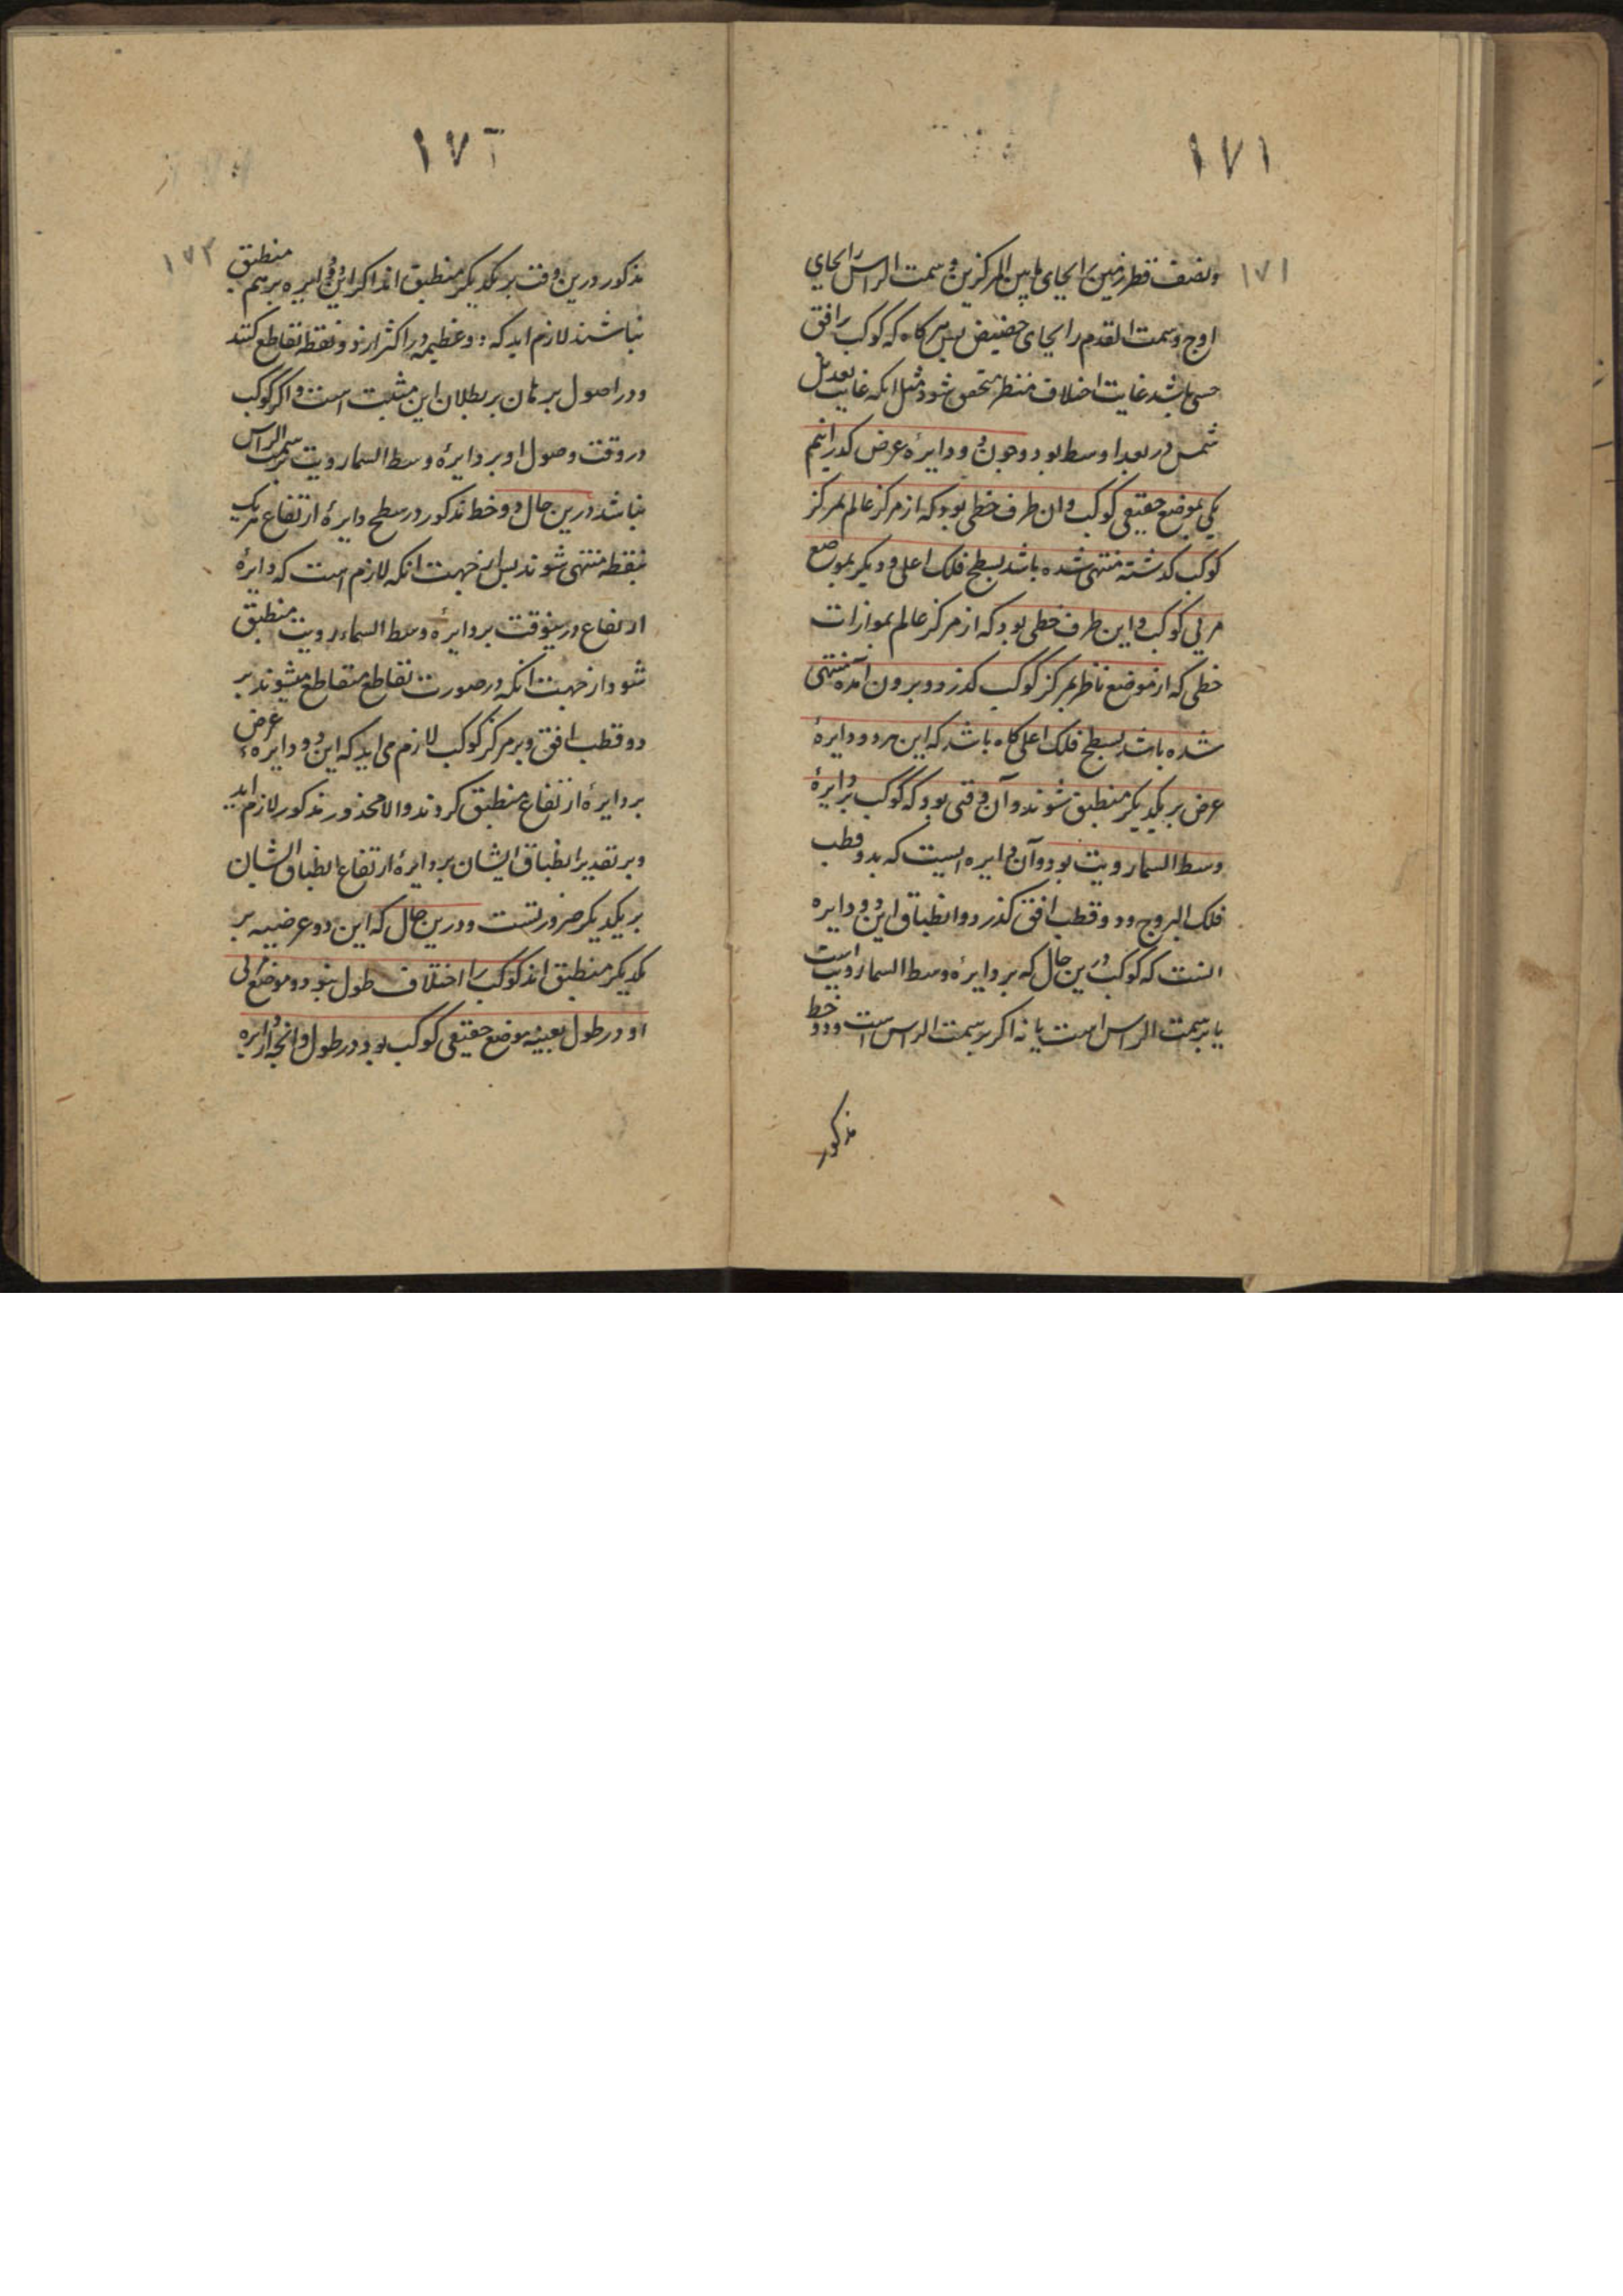 ١٧١
١٧١
ونصف قطر زمین را بجای ما بین المرکزین و سمت الراس را بجای
اوج و سمت القدم را بجای حضیض پس هرکاه که کوکب بر افق
حسی باشد غایت اختلاف منظر متحقق شود مثل انکه غایت تعدیل
شمس در بعد اوسط بود و چون دو دایرهٔ عرض کذرانیم
یکی بموضع حقیقی کوکب و ان طرف خطی بود که از مرکز عالم بمرکز
کوکب کذشته منتهی شده باشد بسطح فلک اعلی و دیکر بموضع
مرئی کوکب و این طرف خطی بود که از مرکز عالم بموازات
خطی که از موضع ناظر بمرکز کوکب کذرد و برون آمده منتهی
شده باشد بسطح فلک اعلی کاه باشد که این هردو دایرهٔ
عرض بر یکدیکر منطبق شوند و آن وقتی بود که کوکب بر دایرهٔ
وسط السمار رویت بود و آن دایره ایست که بدو قطب
فلک البروج و دو قطب افق کذرد و انطباق این دو دایره
انست که کوکب درین حال که بر دایره وسط السمار رویت است
یا بر سمت الراس است یا نه اکر بر سمت الراس است و دو خط
مذکور
١٧٢
١٧٢
مذکور درین وقت بر یکدیکر منطبق اند اکر این دو دایره بر هم منطبق
نباشند لازم اید که دو عظیمه در اکثر از دو نقطه تقاطع کنند
و در اصول برهان بر بطلان این مثبت است و اکر کوکب
در وقت وصول او بر دایرهٔ وسط السمار رویت بر سمت الراس
نباشد درین حال دو خط مذکور در سطح دایرهٔ ارتفاع هر یک
بنقطه منتهی شوند پس از جهت انکه لازم است که دایرهٔ
ارتفاع درینوقت بر دایرهٔ وسط السماء رویت منطبق
شود از جهت انکه در صورت تقاطع متقاطع میشوند بر
دو قطب افق و بر مرکز کوکب لازم می اید که این دو دایرهٔ عرض
بر دایرهٔ ارتفاع منطبق کردند والا محذور مذکور لازم اید
و بر تقدیر انطباق ایشان بر دایرهٔ ارتفاع انطباق ایشان
بر یکدیکر ضروریست و درین حال که این دو عرضیه بر
یکدیکر منطبق اند کوکب را اختلاف طول نبود و موضع مرئی
او در طول بعینه موضع حقیقی کوکب بود در طول و انچه از دایره